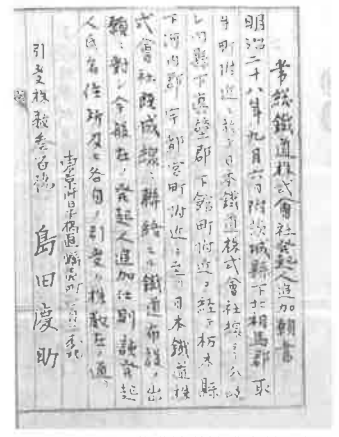 常総鐵道株式會社発起人追加願書
明治二十八年九月六日附茨城縣下北相馬郡取
手町附近ニ於テ日本鐵道株式會社線ヨリ分岐
シ同縣下真壁郡下館町附近ヲ経テ栃木縣
下河内郡宇都宮町附近ニ至リ日本鐵道株
式會社既成線ニ聯絡スル鐵道布設ノ出
願ニ對シ今般左ノ発起人追加仕則該発起
人氏名住所及ビ各自ノ引受ノ株数左ノ通
東京市日本橋區
引受株数壱百株
島田慶助